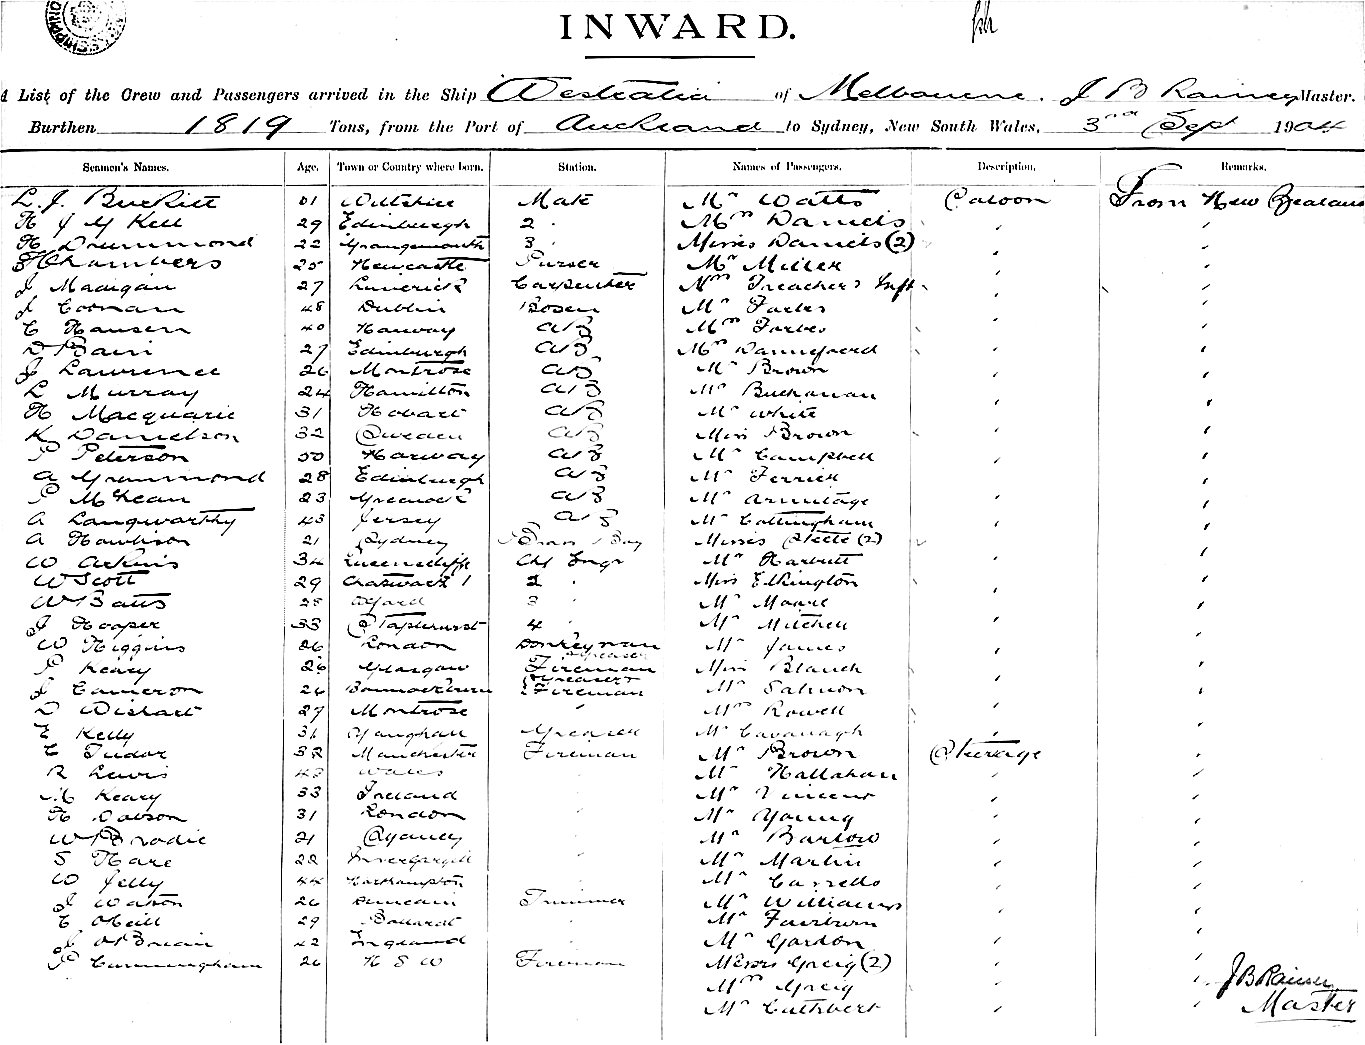 INWARD.
A List of the Crew and Passengers arrived in the Ship Westralia of Melbourne. J B Rainey Master.
Burthen 1819 Tons, from the Port of Auckland to Sydney, New South Wales, 3rd Sept 1904
Seamen's Names. Age. Town or Country where born. Station. Names of Passengers. Description. Remarks.
L. J. Buckitt 31 Wiltshire Mate Mr Watts Saloon From New Zealand
H J G Kell 29 Edinburgh 2 " Mrs Daniels " "
H Drummond 22 Grangemouth 3 " Misses Daniels (2) " "
Chambers 25 Newcastle Purser Mr Miller " "
J Madigan 27 Limerick Carpenter Mrs Treacher & Inft " "
J Coonan 48 Dublin Bosen Mr Forbes " "
C Hansen 40 Norway A/B Mrs Forbes " "
D Bain 27 Edinburgh A/B Mrs Danneford " "
J Lawrence 26 Montrose A/B Mr Brown " "
L Murray 24 Hamilton A/B Mr Buchanan " "
H Macquarie 31 Hobart A/B Mr White " "
K Danielson 32 Sweden A/B Miss Brown " "
P Peterson 50 Norway A/B Mr Campbell " "
A Grummond 28 Edinburgh A/B Mr Ferrier " "
P McKean 23 Greenock A/B Mr Armitage " "
A Langworthy 43 Jersey A/B Mr Cottingham " "
A Howison 21 Sydney Brass Boy Misses Steele (2) " "
W Askins 34 Queenscliffe Chf Engr Mr Harbutt " "
W Scott 29 2 " Miss Elkington " "
W Batts 25 3 " Mr Moore " "
J Hooper 33 Staplehurst 4 " Mr Mitchell " "
W Higgins 26 London Donkeyman Mr James " "
P Keary 26 Glasgow Greaser Fireman Miss Blanch " "
J Cameron 26 Bannockburn Greaser & Fireman Mr Salmon " "
D Wishart 27 Montrose " Mrs Rowell " "
E Kelly 31 Greaser Mr Cavanagh " "
C Tudor 32 Manchester Fireman Mr Brown Steerage "
R Lewis 43 Wales " Mr Hallahan " "
M Keary 33 Ireland " Mr Vincent " "
H Dobson 31 London " Mr Young " "
W Brodie 21 Sydney " Mr Barlow " "
S Hare 22 Invercargill " Mr Martin " "
W Jelly 44 Northampton " Mr " "
J Watson 26 Dunedin Trimmer Mr Williams " "
C O'Neill 29 Ballarat " Mr Fairburn " "
J O'Briain 42 England " Mr Gordon " "
P Cunningham 26 N S W Fireman Misses Greig (2) " "
Mrs Greig " " J B Rainey
Mr Cuthbert " " Master